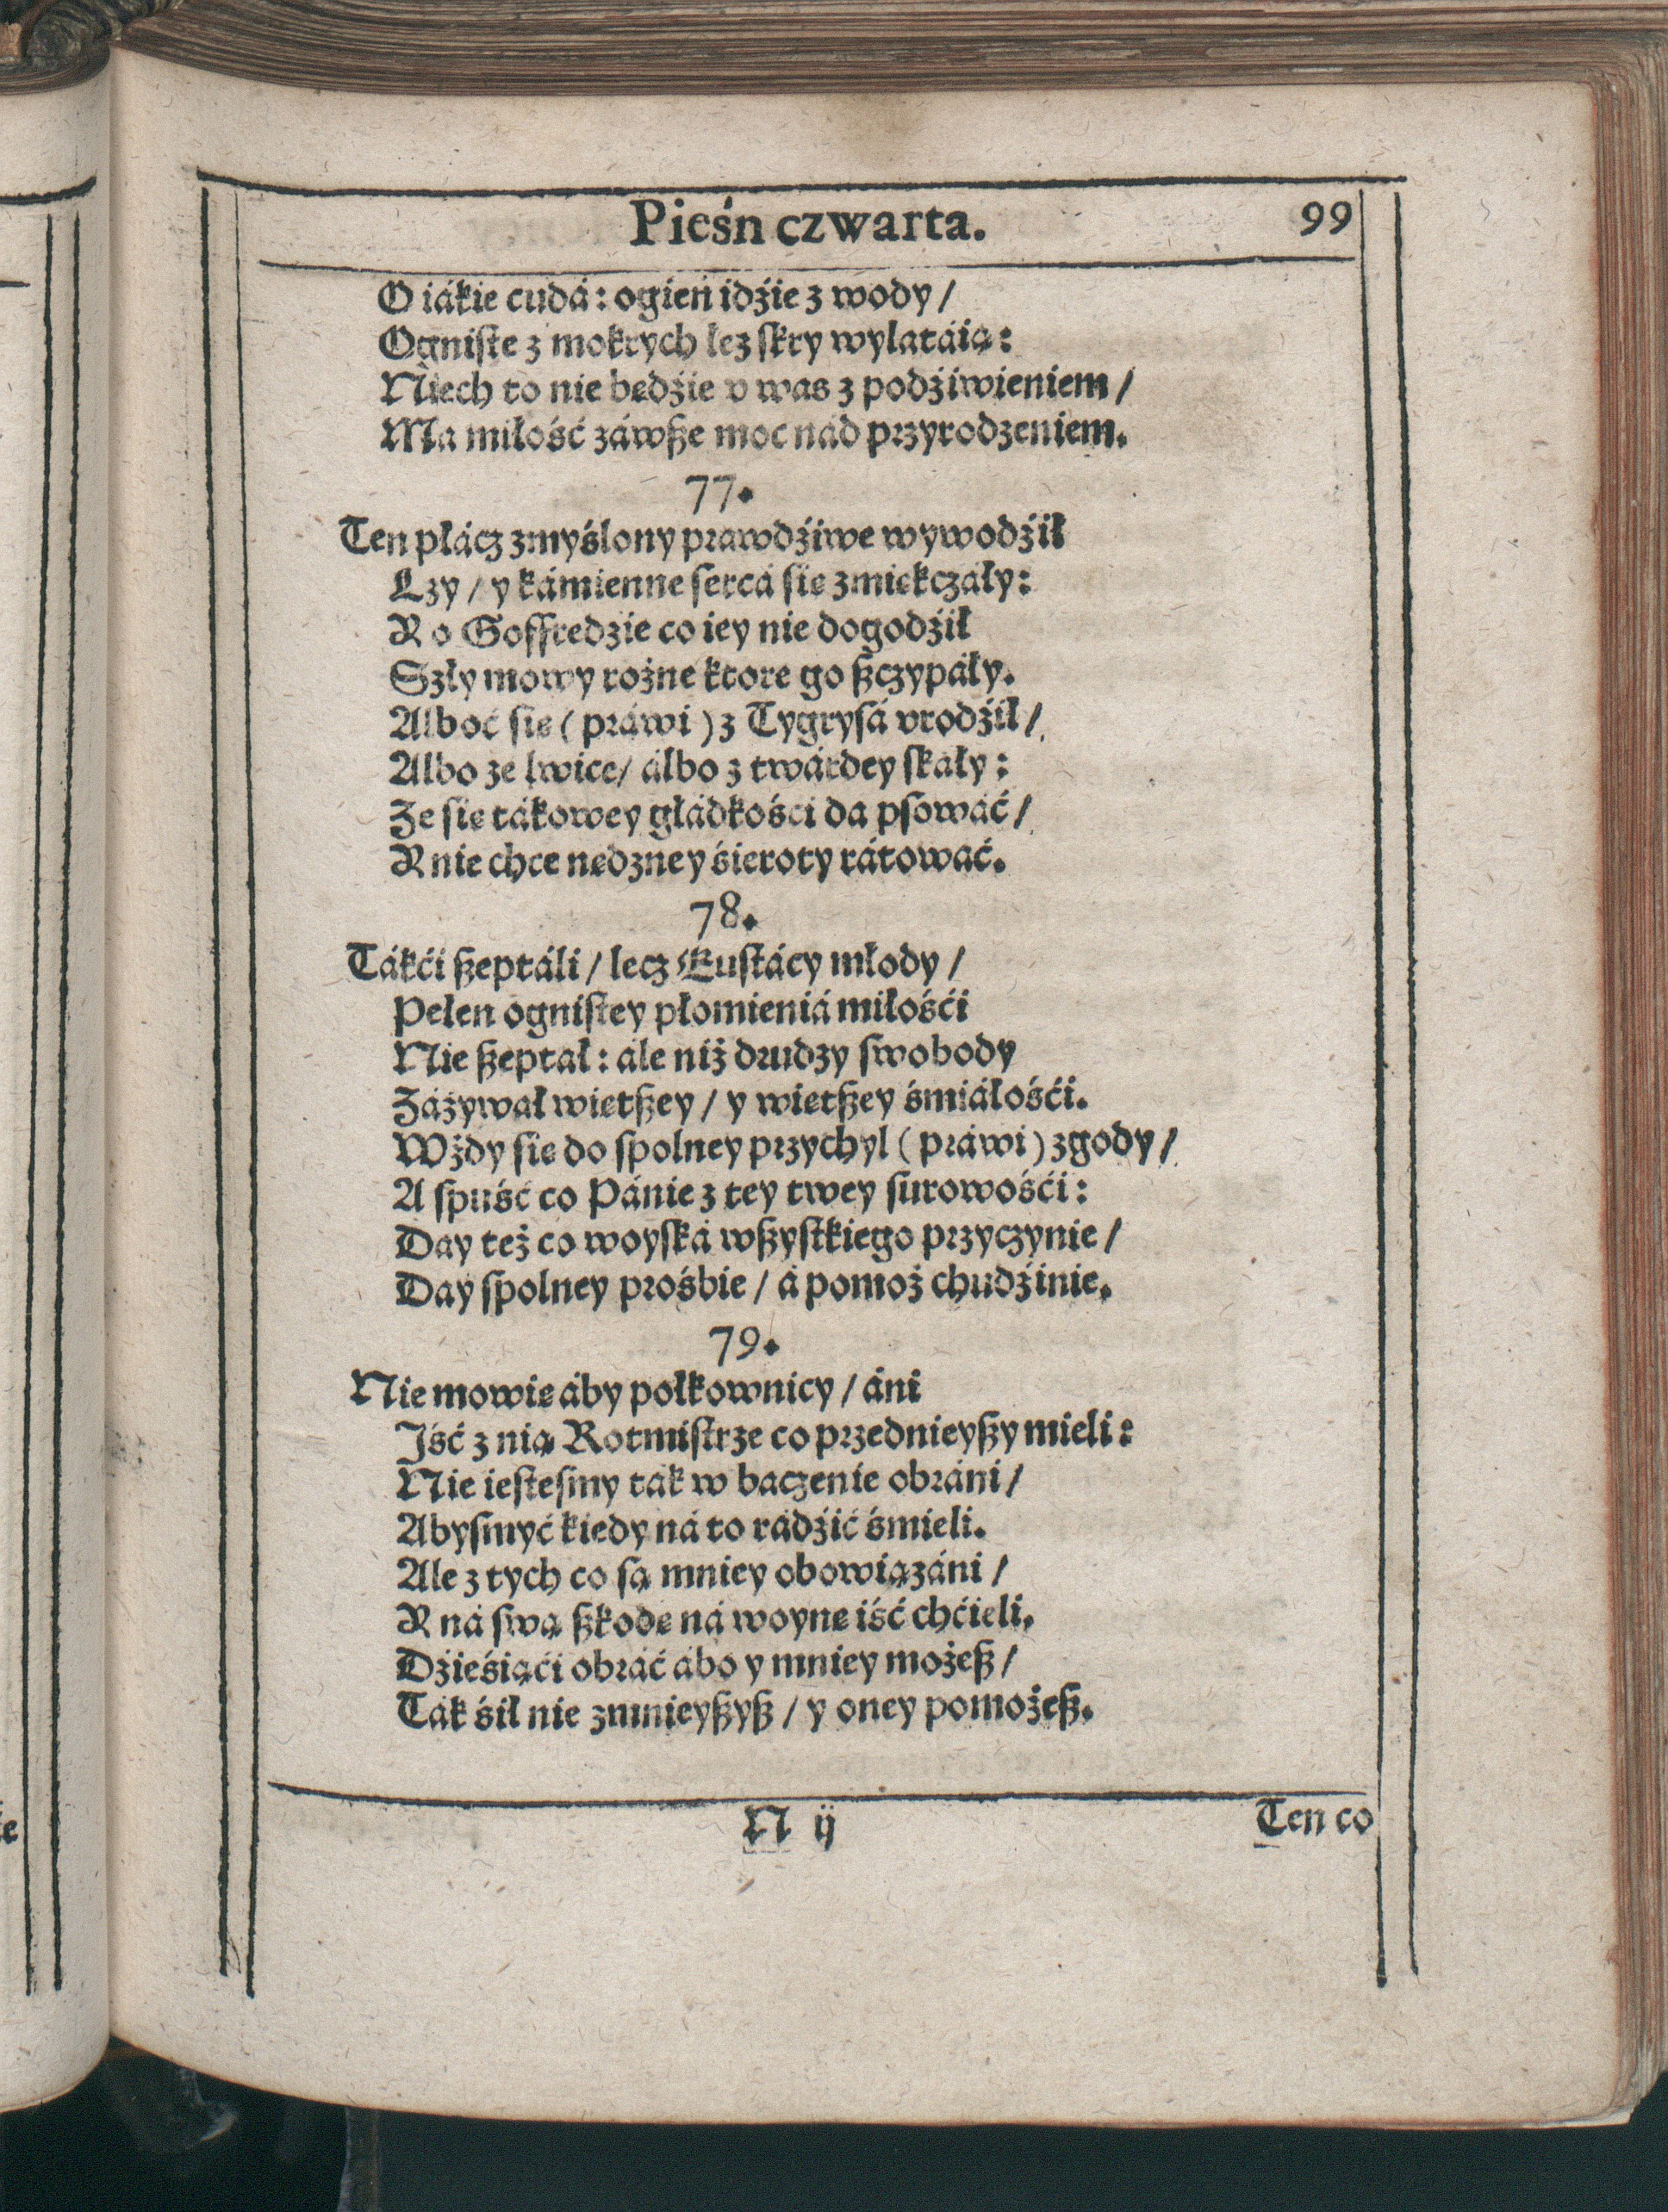 Pieśń czwarta. 99
O iákie cudá: ogień idźie z wody /
Ogniste z mokrych łez skry wylatáią:
Niech to nie będźie v was z podźiwieniem /
Ma miłość záwsze moc nád przyrodzeniem.
77.
Ten płácz zmyślony prawdźiwe wywodźił
Łzy / y kámienne sercá się zmiękczáły:
R o Goffredzie co iey nie dogodźił
Szły mowy rożne ktore go szczypáły.
Alboć się (práwi) z Tygrysá vrodźił /
Albo ze lwice / álbo z twárdey skáły:
Że się tákowey głádkości da psowáć /
R nie chce nędzney śieroty rátowáć.
78.
Tákći szeptáli / lecz Eustácy młody /
Pełen ognistey płomieniá miłośći
Nie szeptał: ále niż drudzy swobody
Záżywał większey / y więtszey śmiáłośći.
Wżdy się do spolney przychyl (práwi) zgody /
A spuść co Pánie z tey twey surowośći:
Day też co woyská wszystkiego przyczynie /
Day spolney prośbie / á pomoż chudźinie.
79.
Nie mowię áby połkownicy / áni
Iść z nią Rotmistrze co przednieyszy mieli:
Nie iestesmy ták w baczenie obráni /
Abysmyć kiedy ná to rádźić śmieli.
Ale z tych co są mniey obowiązáni /
R ná swą szkodę ná woynę iść chćieli.
Dźieśiąći obráć ábo y mniey możesz /
Ták śił nie zmnieyszysz / y oney pomożesz.
N ij
Ten co
te